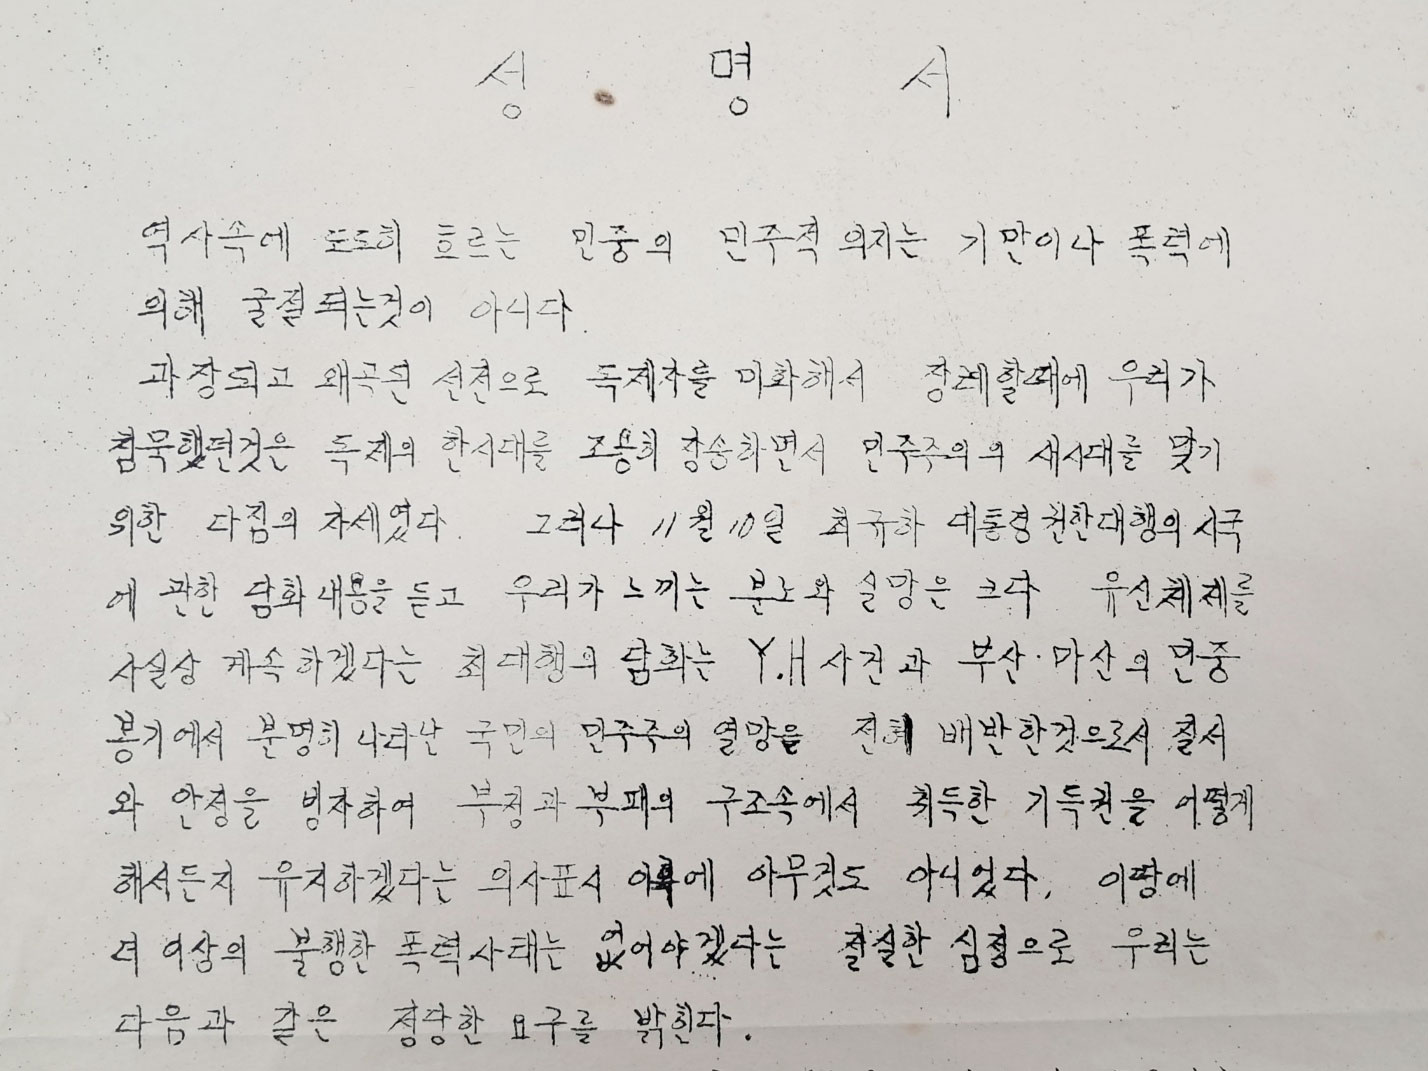 성 명 서
역사속에 도도히 흐르는 민중의 민주적 의지는 기만이나 폭력에
의해 굴절되는것이 아니다.
과장되고 왜곡된 선전으로 독재자를 미화해서 장례할때에 우리가
침묵했던것은 독재의 한시대를 조용히 장송하면서 민주주의의 새시대를 맞기
위한 다짐의 자세였다. 그러나 11월 10일 최규하 대통령권한대행의 시국
에 관한 담화내용을 듣고 우리가 느끼는 분노와 실망은 크다 유신체제를
사실상 계속하겠다는 최대행의 담화는 Y.H 사건과 부산·마산의 민중
봉기에서 분명히 나타난 국민의 민주주의 열망을 전혀 배반한것으로서 질서
와 안정을 빙자하여 부정과 부패의 구조속에서 취득한 기득권을 어떻게
해서든지 유지하겠다는 의사표시 이외에 아무것도 아니었다. 이땅에
더 이상의 불행한 폭력사태는 없어야겠다는 절실한 심정으로 우리는
다음과 같은 정당한 요구를 밝힌다.